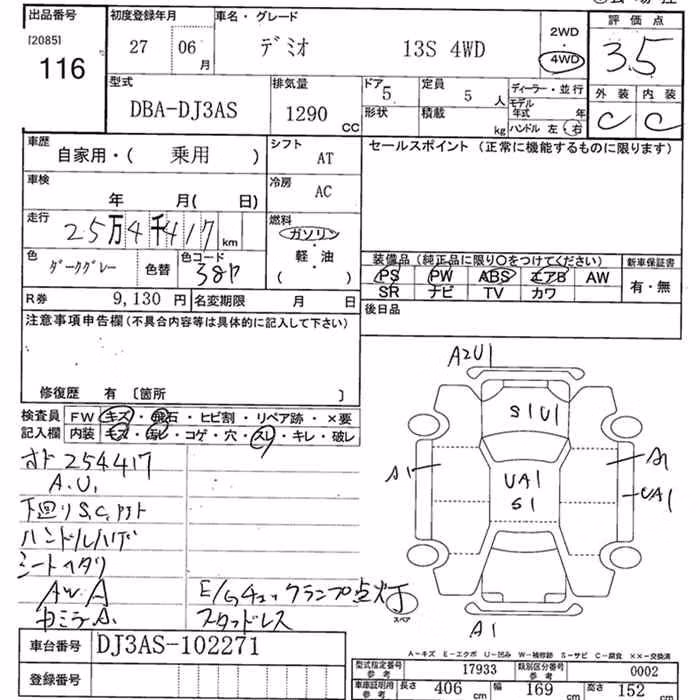 出品番号 初度登録年月 車名・グレード 2WD 評価点
[2085] 27 06月 デミオ 13S 4WD ・ 3.5
116 4WD
型式 排気量 ドア 定員 ディーラー・並行 外装 内装
DBA-DJ3AS 1290 CC 5 5 人 モデル年式 年 C C
形状 積載 kg ハンドル 左・右
車歴 シフト セールスポイント (正常に機能するものに限ります)
自家用・( 乗用 ) AT
車検 冷房
年 月( 日) AC
走行 燃料
25万4千417 km ガソリン
・
色 色コード 軽・油
ダークグレー 色替 38P ( )
装備品 (純正品に限り○をつけてください) 新車保証書
PS PW ABS エアB AW 有・無
SR ナビ TV カワ
R券 9,130 円 名変期限 月 日 後日品
注意事項申告欄 (不具合内容等は具体的に記入して下さい)
修復歴 有 〔箇所 〕
検査員 FW キズ・飛石・ヒビ割・リペア跡・×要
記入欄 内装 キズ・汚レ・コゲ・穴・スレ・キレ・破レ
オド254417
A.U1
下回りS.C.
ハンドルハゲ
シートヘタリ
AW A
カミラA. E/Gチェックランプ点灯
スタッドレス
A2U1
S1U1
A1 A1
UA1 UA1
S1
スペア
A1
A-キズ E-エクボ U-凹み W-補修跡 S-サビ C-腐食 ××-交換済
車台番号 DJ3AS-102271
登録番号
型式指定番号 参考 17933 類別区分番号 参考 0002
車庫証明用 参考 長さ 406 cm 幅 169 cm 高さ 152 cm